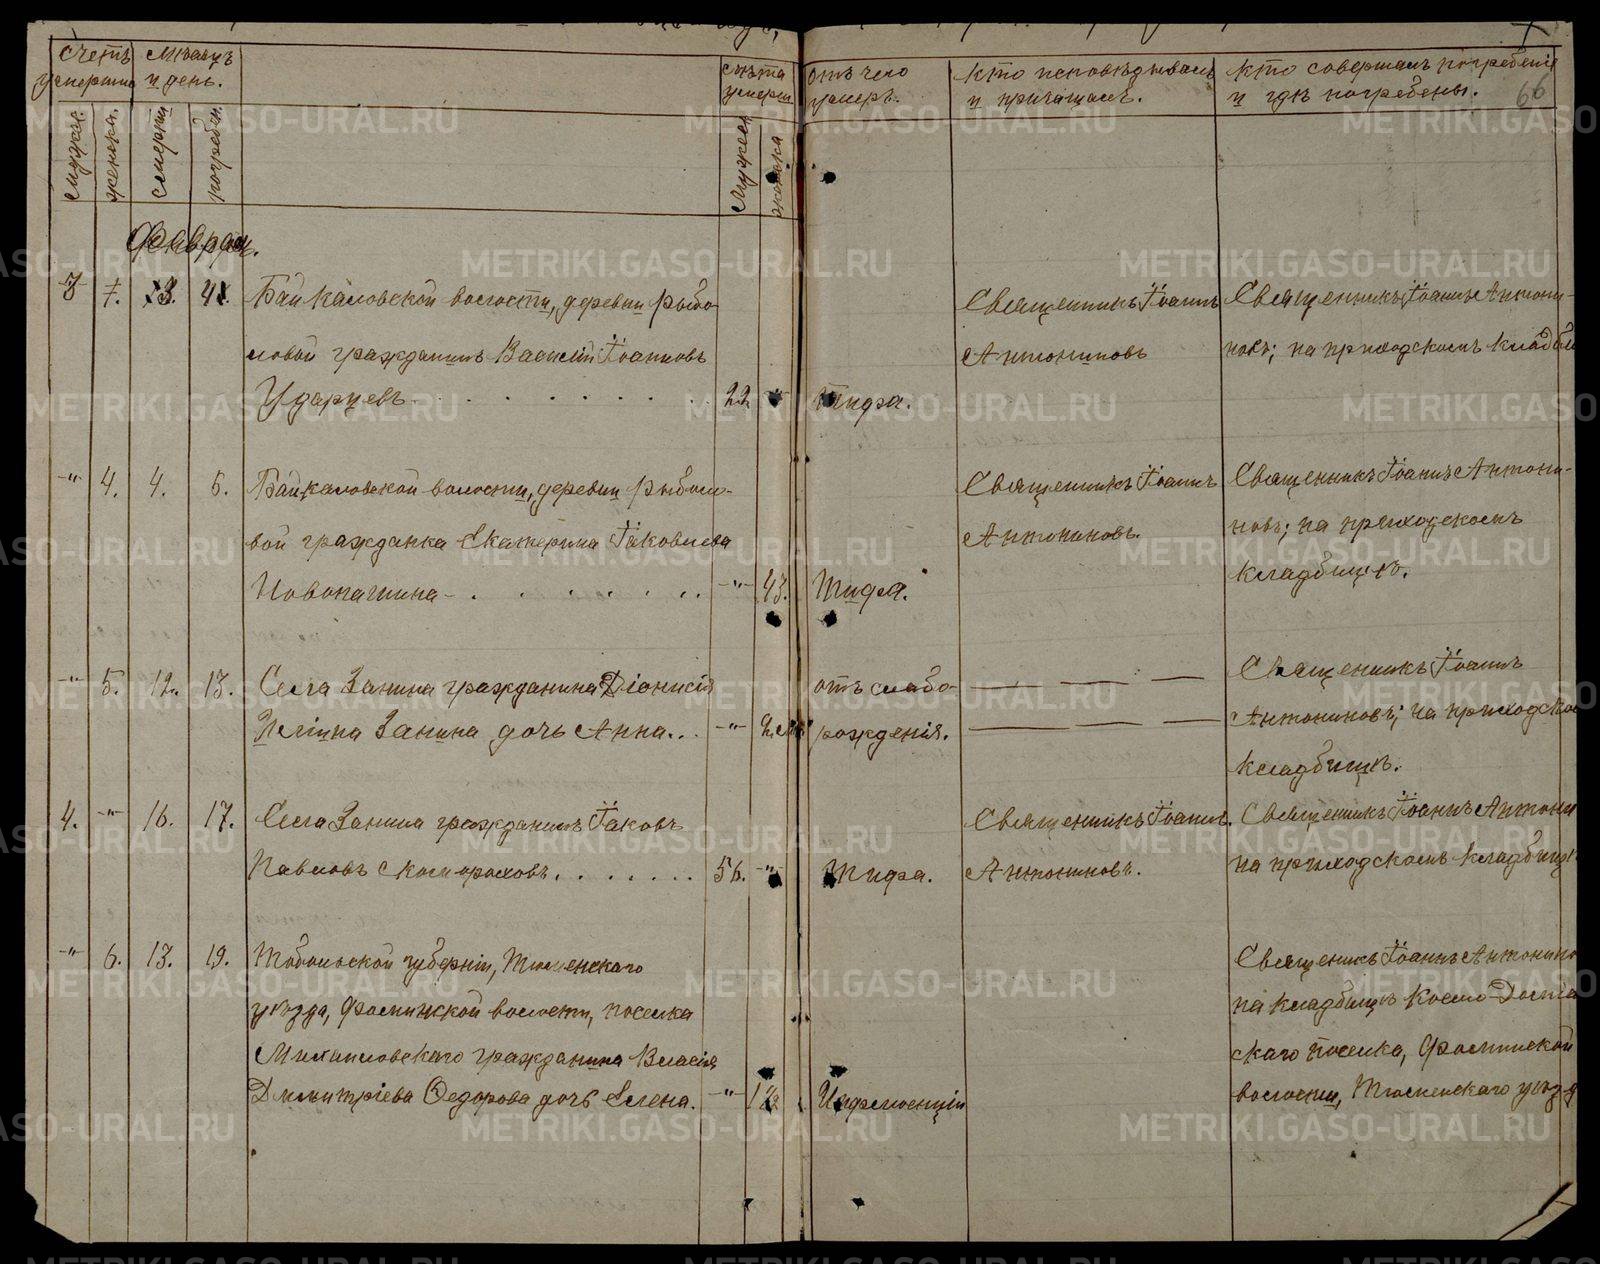 Счетъ умершихъ
Мѣсяцъ и день.
Лѣта умерш.
отъ чего умеръ.
кто исповѣдывалъ и причащалъ.
кто совершалъ погребеніе и гдѣ погребены.
66
мужска.
женска.
смерти
погребен.
Мужеска
женска
Февраль.
3 3. 4.
Байкаловской волости, деревни Рыбо-
ловой гражданинъ Василій Іоанновъ
Ударцевъ 22 Тифа.
Священникъ Іоаннъ
Антониновъ
Священникъ Іоаннъ Антони-
новъ; на приходскомъ кладби
-"- 4. 4. 5. Байкаловской волости, деревни Рыболо-
вой гражданка Екатерина Іаковлева
Новопашина -"- 43. Тифа.
Священникъ Іоаннъ
Антониновъ.
Священникъ Іоаннъ Антони-
новъ; на приходскомъ
кладбищѣ.
-"- 5. 12. 13. Села Занина гражданина Діонисія
Занина дочь Анна. -"-
отъ слабо-
рожденія.
Священникъ Іоаннъ
Антониновъ; на приходско
кладбищѣ.
4. -"- 16. 17. Села Занина гражданинъ Іаковъ
Павловъ Скомороховъ 56. -"- Тифа.
Священникъ Іоаннъ.
Антониновъ.
Священникъ Іоаннъ Антони
на приходскомъ кладбищѣ
-"- 6. 13. 19. Тобольской губерніи, Тюменскаго
уѣзда, Фоминской волости, поселка
Михаиловскаго гражданина Власія
Димитріева Ѳедорова дочь Елена. -"- Инфлюенціи
Священникъ Іоаннъ Антонино
на кладбищѣ
скаго поселка, Фоминской
волости, Тюменскаго уѣзд
METRIKI.GASO-URAL.RU